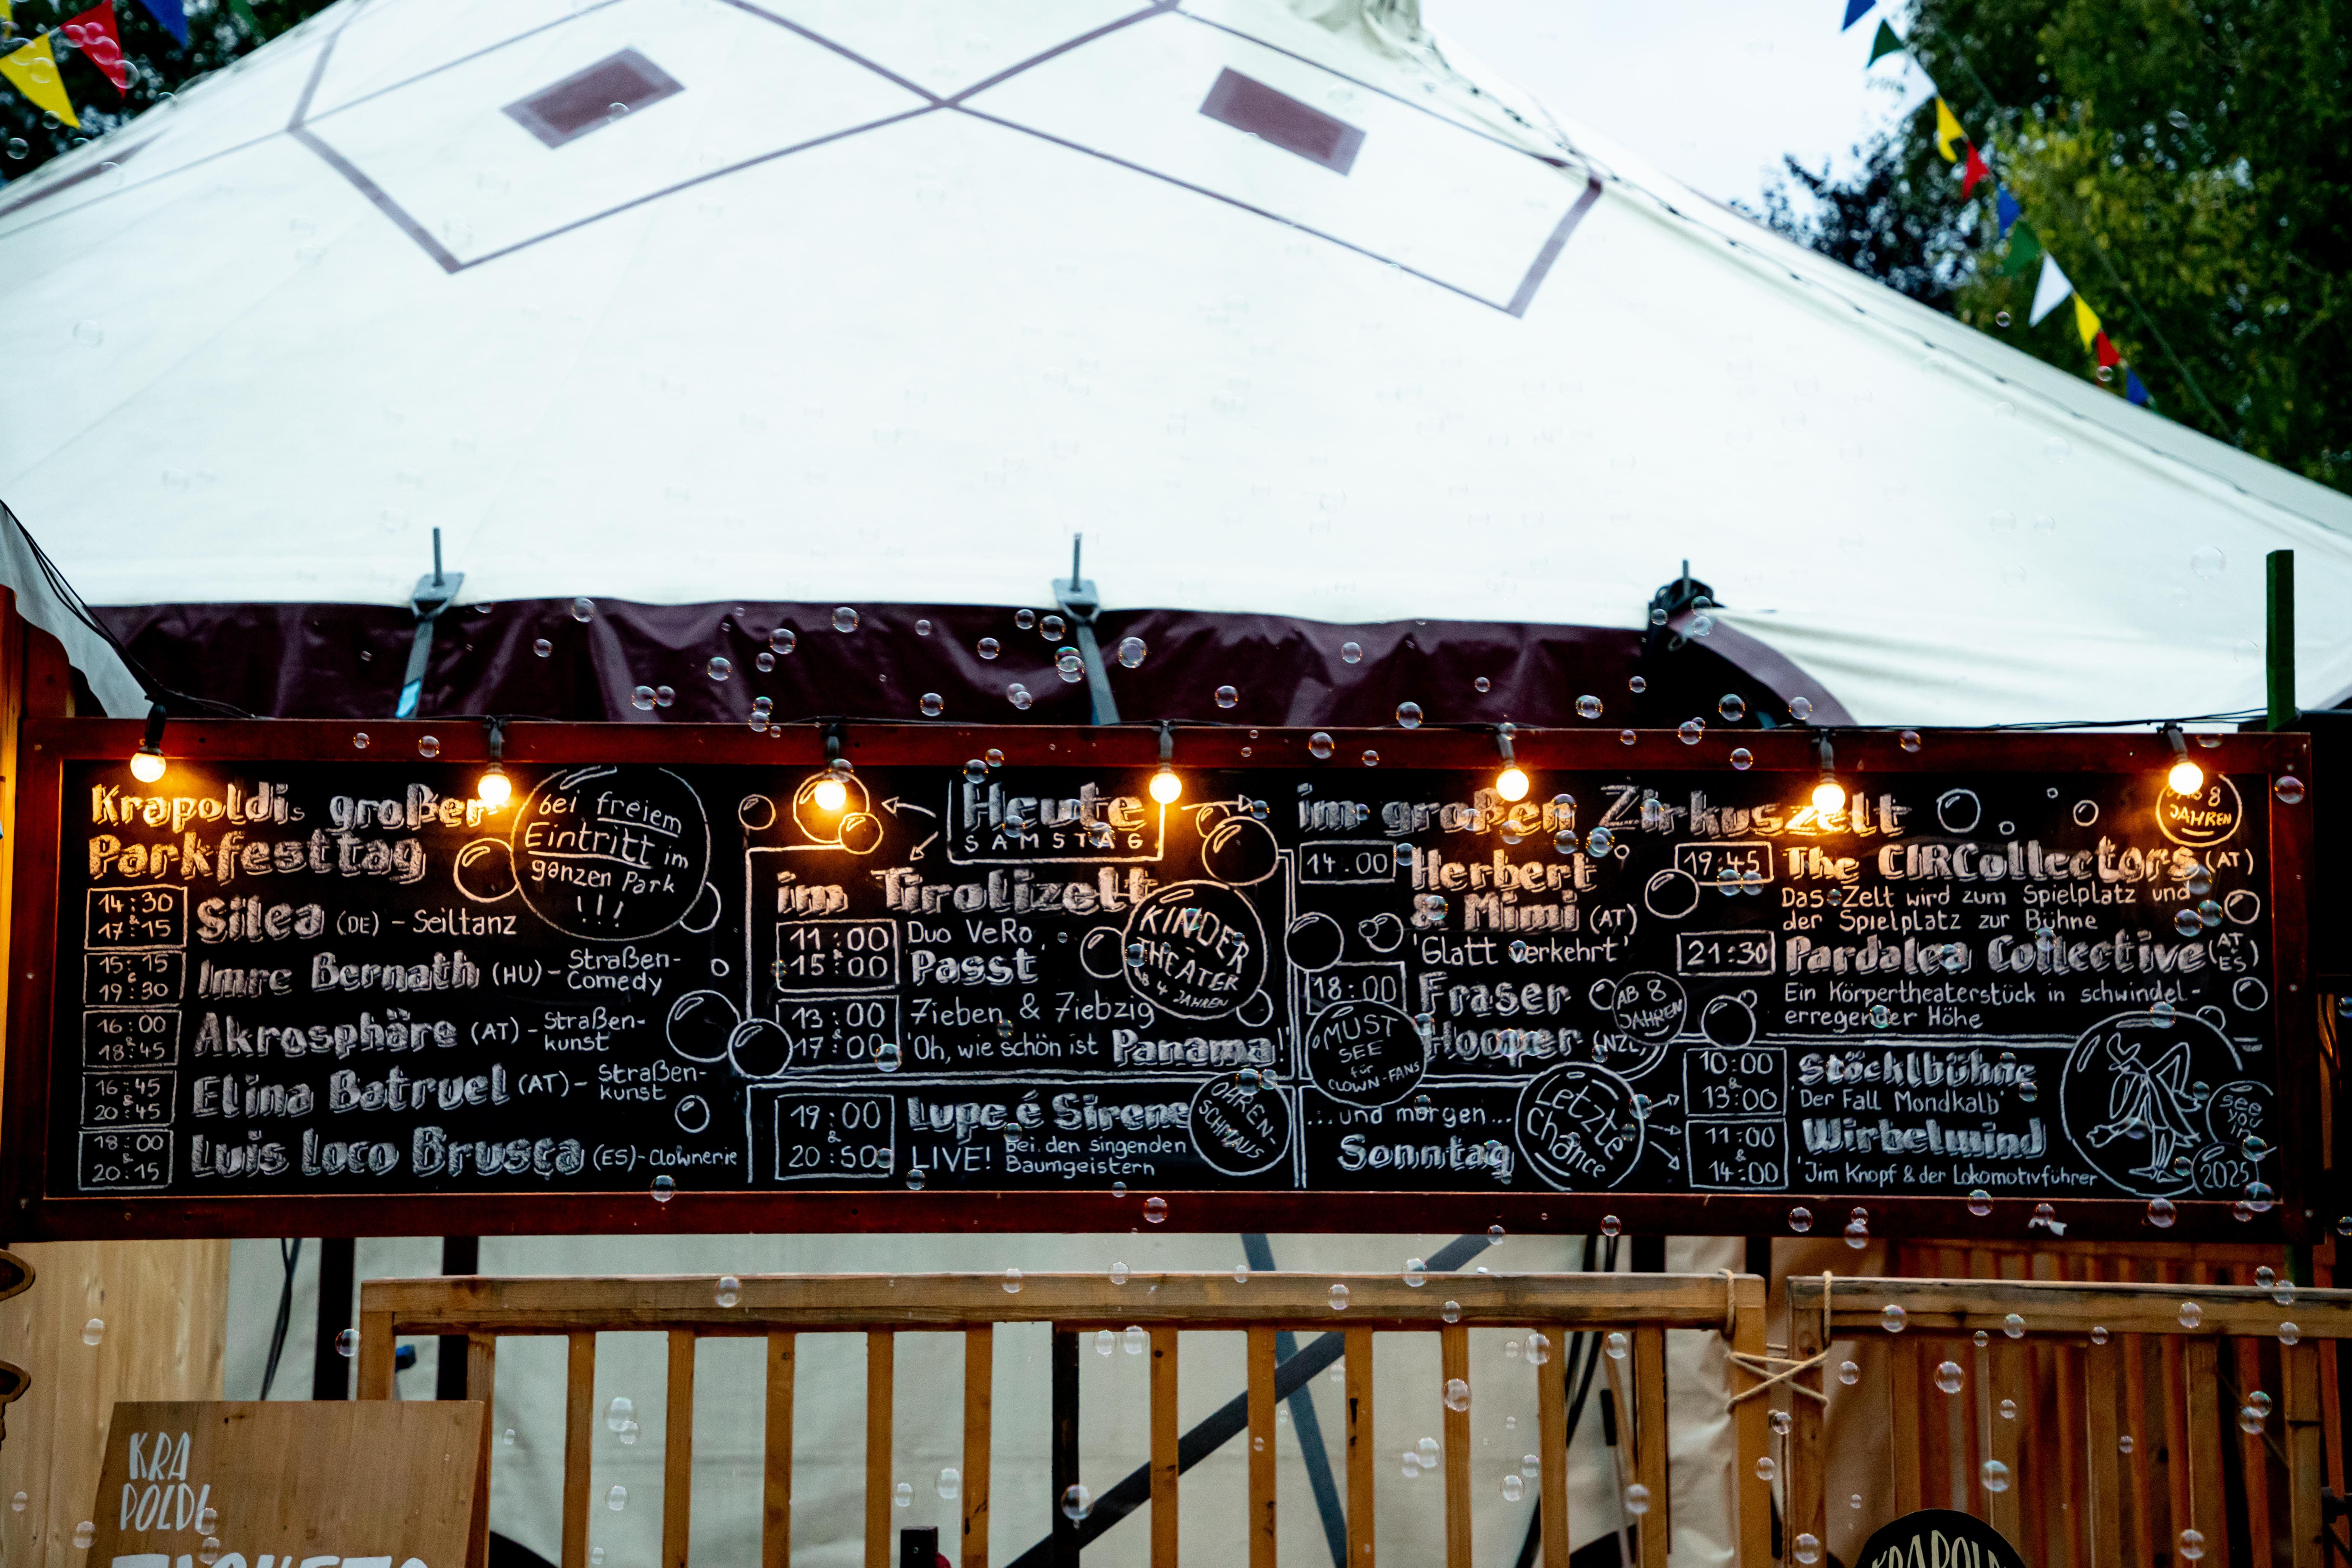 Krapoldis großer
Parkfesttag
bei freiem
Eintritt im
ganzen Park
!!!
14:30
&
17:15
Silea (DE) - Seiltanz
15:15
&
19:30
Imre Bernath (HU) - Straßen-
Comedy
16:00
&
18:45
Akrosphäre (AT) - Straßen-
kunst
16:45
&
20:45
Elina Batruel (AT) - Straßen-
kunst
18:00
&
20:15
Luis Loco Brusca (ES) - Clownerie
Heute
SAMSTAG
im Tirolizelt
KINDER
THEATER
AB 4 JAHREN
11:00
&
15:00
Duo VeRo
Passt
13:00
&
17:00
7ieben & 7iebzig
'Oh, wie schön ist Panama!'
19:00
&
20:50
Lupe é Sirene
LIVE! bei den singenden
Baumgeistern
OHREN-
SCHMAUS
im großen Zirkuszelt
14:00
Herbert
& Mimi (AT)
'Glatt verkehrt'
18:00
Fraser
Hooper (NZL)
AB 8
JAHREN
MUST
SEE
für
CLOWN-FANS
19:45
The CIRCollectors (AT)
AB 8
JAHREN
Das Zelt wird zum Spielplatz und
der Spielplatz zur Bühne
21:30
Pardalea Collective (AT
ES)
Ein Körpertheaterstück in schwindel-
erregender Höhe
...und morgen...
Sonntag
Letzte
Chance
10:00
&
13:00
Stöcklbühne
'Der Fall Mondkalb'
11:00
&
14:00
Wirbelwind
'Jim Knopf & der Lokomotivführer
see
you
in
2025
KRA
POLDI
TICKETS
KRAPOLDI